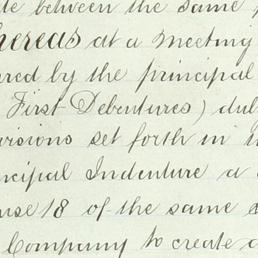 te between the same p
hereas at a meeting
ured by the principal
First Debentures) dul
visions set forth in t
ncipal Indenture a
use 18 of the same
Company to create a